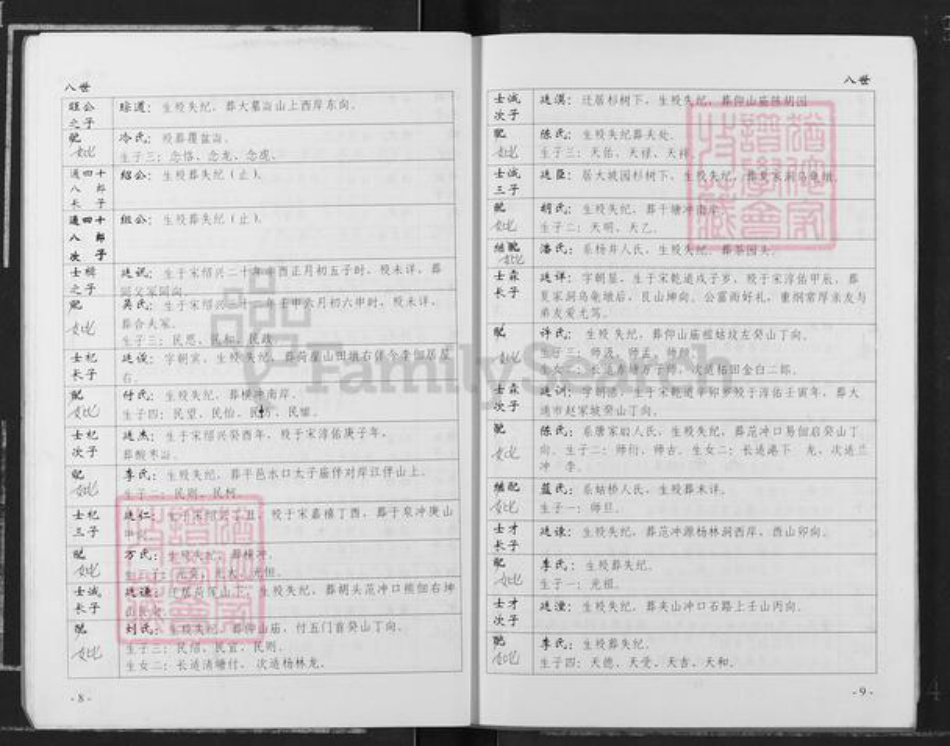 八世
旺公之子
琮道：生殁失纪，葬大墓汕山上西岸东向。
配妣
冷氏：殁葬覆盆汕。
生子三：念恪、念龙、念虎。
通四十八郎长子
绍公：生殁葬失纪（止）。
通四十八郎次子
组公：生殁葬失纪（止）。
之子
生于宋绍兴二十年辛酉正月初五子时，殁未详，葬
同父冢同向。
配妣
吴氏：生于宋绍兴二十二年壬申六月初六申时，殁未详，
葬合夫冢。
生子三：民思、民和、民政
士杞长子
廷俊：字朝宾，生殁失纪，葬荷屋山田墩右伴今李佃居屋
右。
配妣
付氏：生殁失纪，葬横冲南岸。
生子四：民望、民怡、民
士杞次子
廷杰：生于宋绍兴癸酉年，殁于宋淳佑庚子年，
配妣
李氏：生殁失纪，葬平邑水口太子庙伴对岸江伴山上。
生子二：民则、民柯
士杞三子
廷仁：
殁于宋嘉禧丁酉，葬于泉冲庚山
配妣
万氏：生殁失纪，葬横冲。
士诚长子
廷谦：迁居荷屋山上，生殁失纪，葬朝头范冲口熊佃右坤
配妣
刘氏：生殁失纪，葬仰山庙，付五门首癸山丁向。
生子三：民绍、民宜、民则。
生女二：长适清塘付、次适杨林龙。
- 8 -
八世
士诚次子
廷溟：迁居杉树下，生殁失纪，葬仰山庙陈胡园
配妣
陈氏：生殁失纪葬夫处。
生子三：天佑、天禄、天祥
士诚三子
廷臣：居大坡园杉树下，生殁失纪，葬夏家洞乌龟墩
配妣
胡氏：生殁失纪，葬干塘冲南岸
生子二：天明、天乙。
继配妣
潘氏：系杨井人氏，生殁失纪，葬茶园头
士森长子
廷详：字朝显，生于宋乾道戌子岁，殁于宋淳佑甲辰，葬
夏家洞乌龟墩后，艮山坤向。公富而好礼，重纲常厚亲友与
弟友爱尤笃。
配妣
许氏：生殁失纪，葬仰山庙祖姑坟左癸山丁向。
生子三：师汲、师孟、师颜
生女二：长适赤塘万子师，次适祐田金白二郎。
士森次子
廷训：字朝德，生于宋乾道辛卯岁殁于淳佑壬寅年，葬大
通市赵家坡癸山丁向。
配妣
陈氏：系唐家人氏，生殁失纪，葬范冲口易佃启癸山丁
向。生子二：师衍、师古。生女二：长适港下 龙，次适兰
冲 李。
继配妣
蓝氏：系姑桥人氏，生殁葬未详。
生子一：师旦。
士才长子
廷谏：生殁失纪，葬范冲源杨林洞西岸，酉山卯向。
配妣
李氏：生殁葬失纪。
生子一：光祖。
士才次子
廷潼：生殁失纪，葬夹山冲口石路上壬山丙向。
配妣
李氏：生殁葬失纪。
生子四：天德、天受、天吉、天和。
- 9 -
FamilySearch